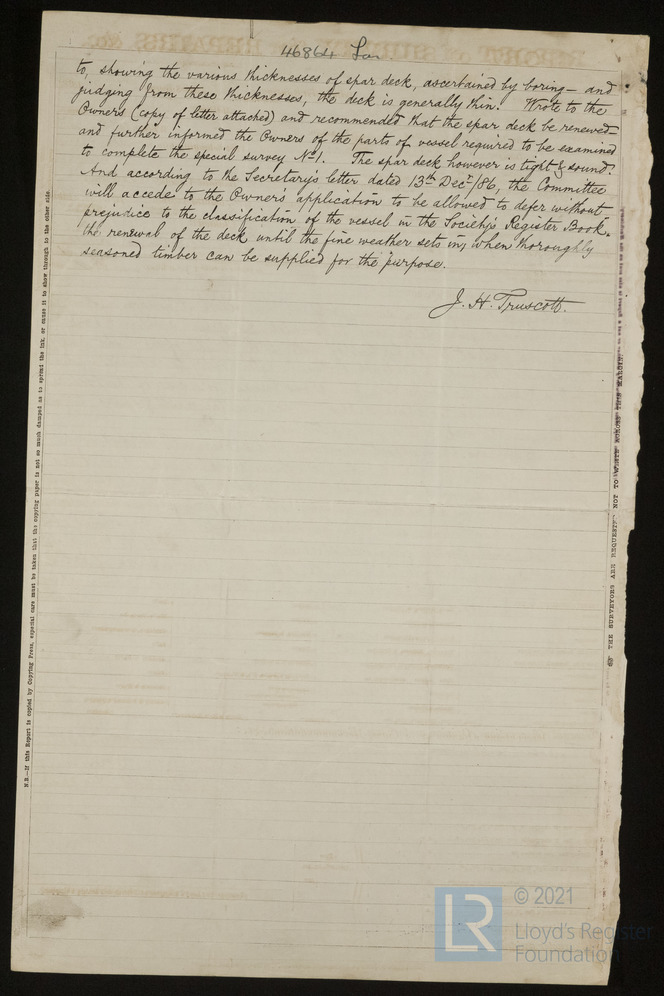 46864 Lon
to, showing the various thicknesses of spar deck, ascertained by boring — and
judging from these thicknesses, the deck is generally thin. Wrote to the
Owners (copy of letter attached) and recommended that the spar deck be renewed
and further informed the Owners of the parts of vessel required to be examined
to complete the special survey No 1. The spar deck however is tight & sound.
And according to the Secretary's letter dated 13th Decr/86, the Committee
will accede to the Owner's application to be allowed to defer without
prejudice to the classification of the vessel in the Society's Register Book,
the renewal of the deck until the fine weather sets in, when thoroughly
seasoned timber can be supplied for the purpose.
J. H. Truscott.
N.B.—If this Report is copied by Copying Press, especial care must be taken that the copying paper is not so much damped as to spread the ink, or cause it to show through to the other side.
THE SURVEYORS ARE REQUESTED NOT TO WRITE ACROSS THIS MARGIN
LR
© 2021
Lloyd's Register
Foundation